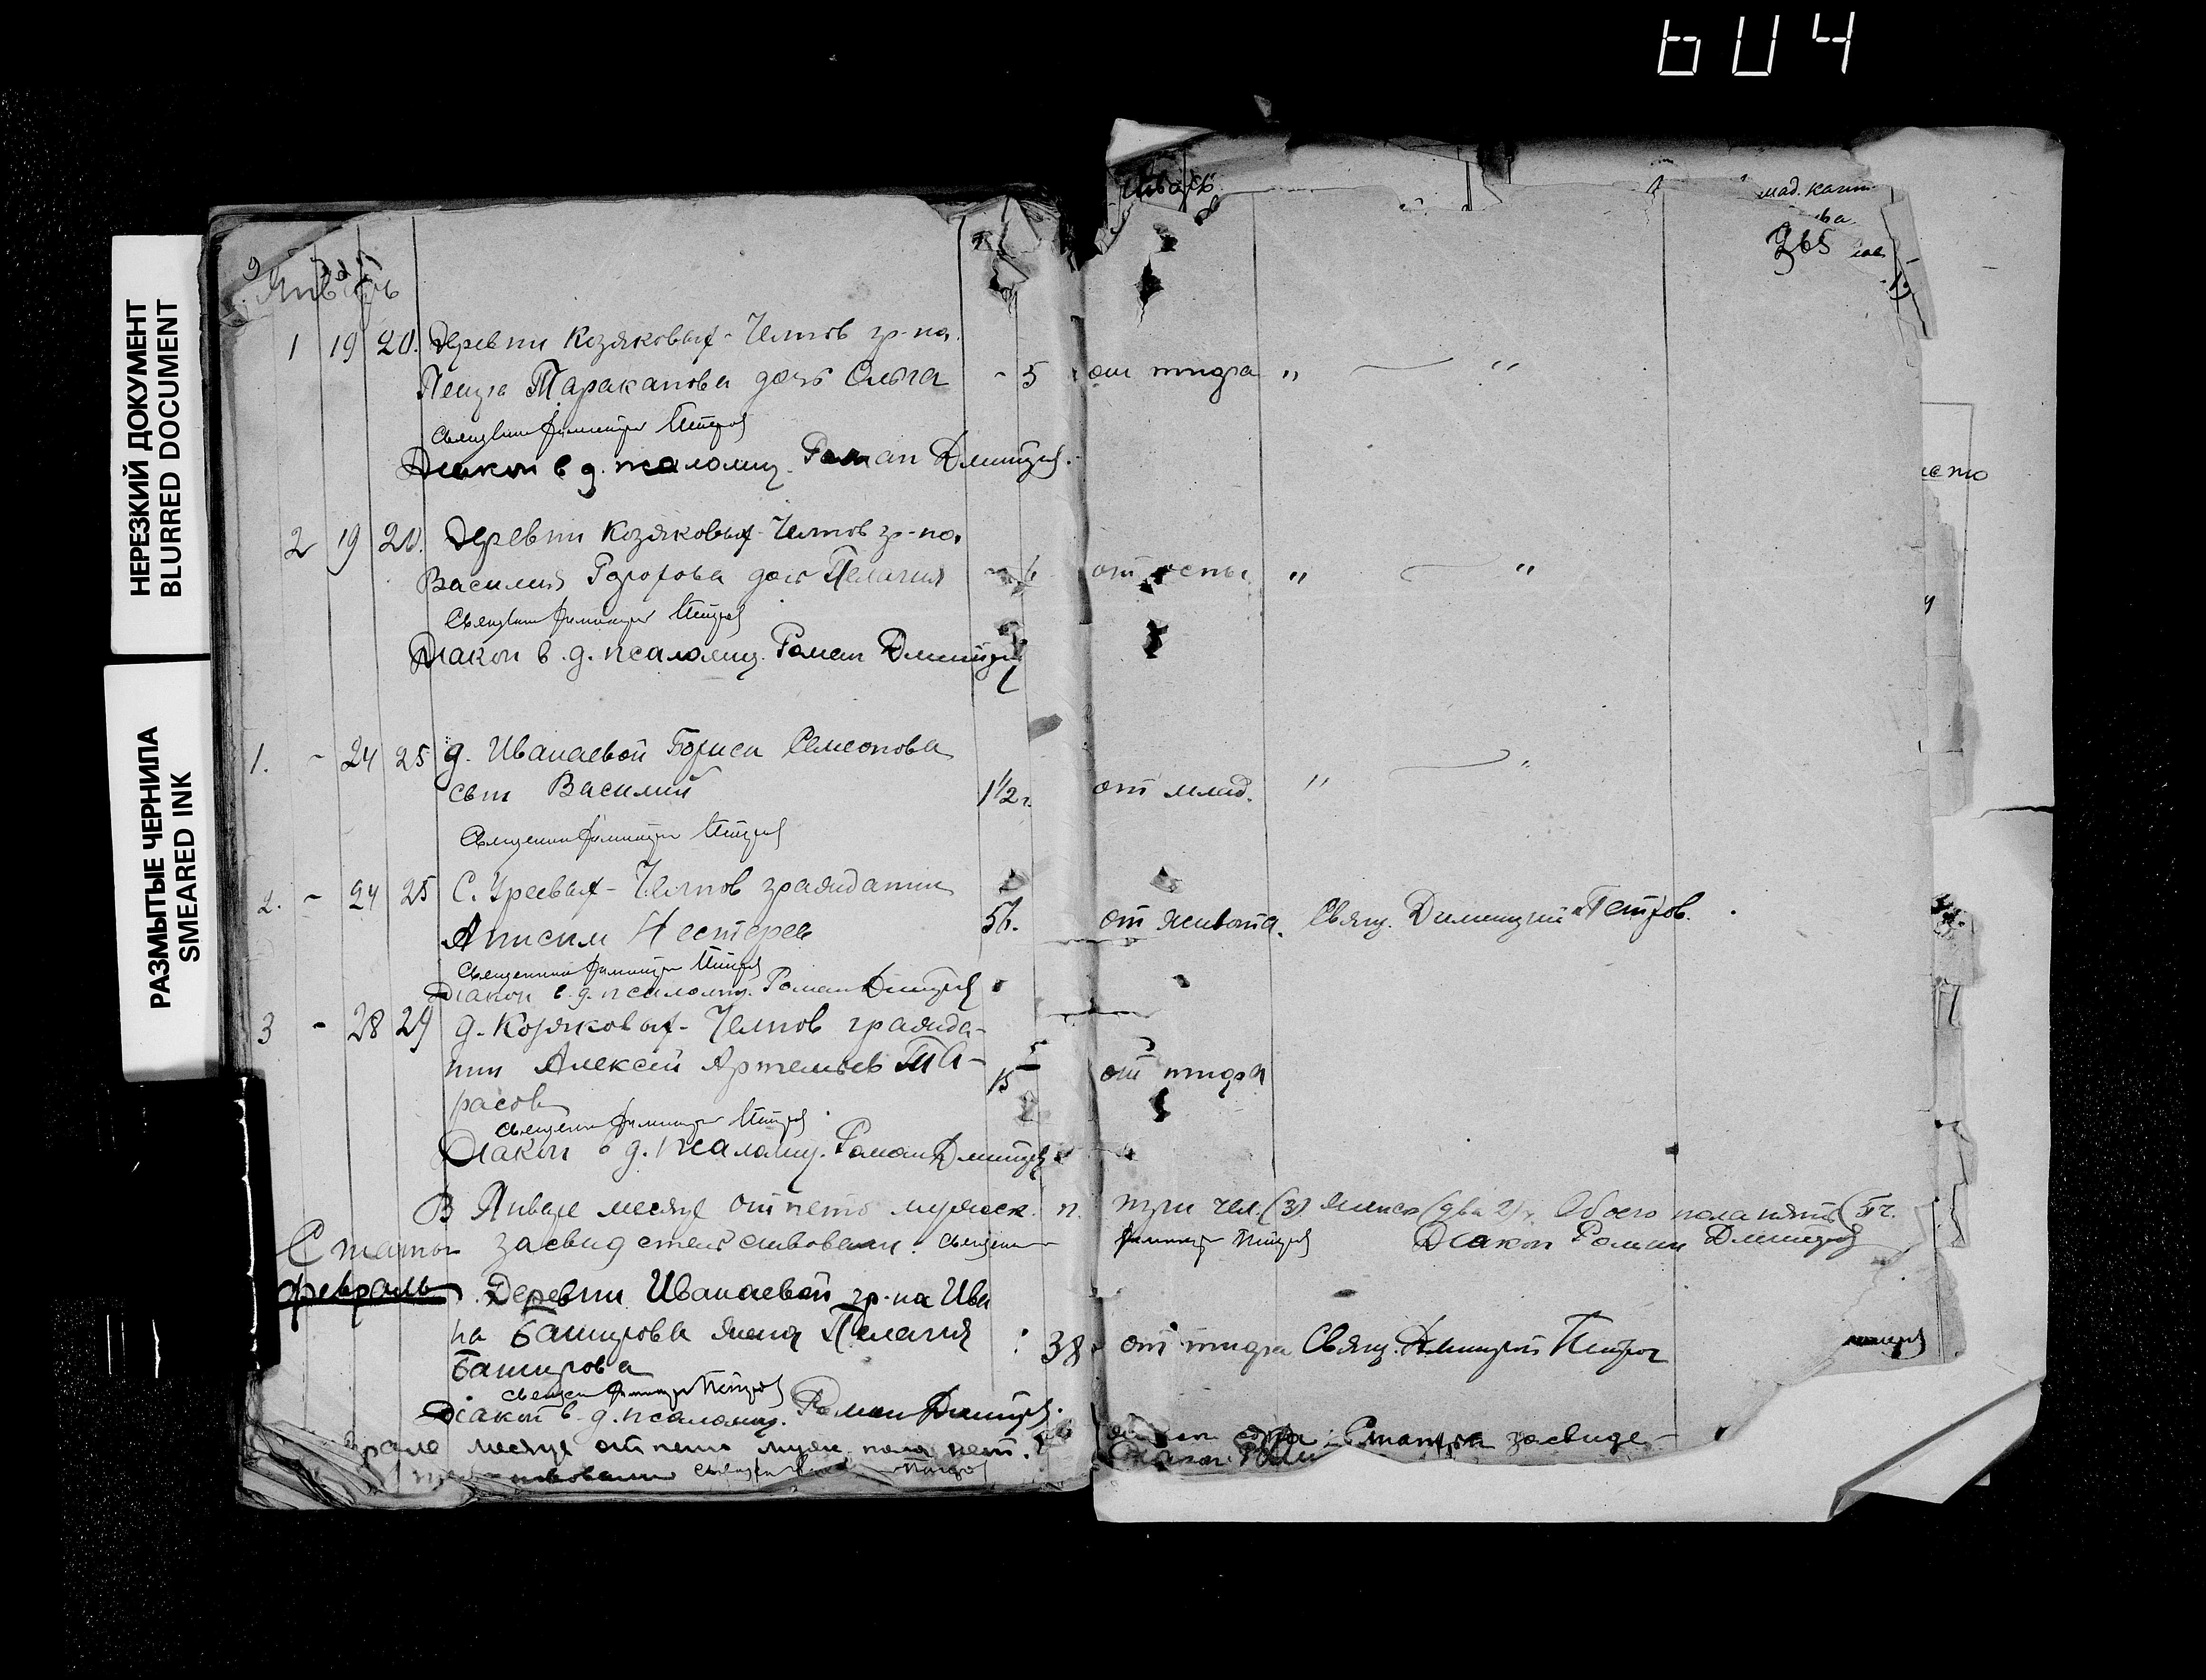 604
НЕРЕЗКИЙ ДОКУМЕНТ
BLURRED DOCUMENT
РАЗМЫТЫЕ ЧЕРНИЛА
SMEARED INK
Январь
365
1 19 20. Деревни Козяковых-Челнов гр-на
Тараканова дочь Ольга - 5 от тифа " — "
Священник Димитрий Петров
Диакон в д. псаломщ. Роман Дмитриев.
2 19 20. Деревни Козяковых-Челнов гр-на
Василия дочь Пелагия от оспы " — "
Священник Димитрий Петров
Диакон в д. псаломщ. Роман Дмитриев
1. - 24 25 д. Иванаевой Бориса Семенова
сын Василий 1 1/2 г. от млад. " — "
Священник Димитрий Петров
2. - 24 25 С. Уреевых-Челнов гражданин
Анисим Нестерев 56. от живота. Свящ. Димитрий Петров.
Священник Димитрий Петров
Диакон в д. псаломщ. Роман Дмитриев
3 - 28 29 д. Козяковых-Челнов гражда-
нин Алексей Артемьев Та- 15 от тифа
расов
Священник Димитрий Петров
Диакон в д. псаломщ. Роман Дмитриев
В Январе месяце отпето мужск. п. три чел. (3) женск (два 2). Обоего пола пять (5 ч.
засвидетельствовали: Священник Димитрий Петров Диакон Роман Дмитриев
Февраль Деревни Иванаевой гр-на Ива
на Башурова жена Пелагия 38 от тифа Свящ. Дмитрий Петров
Башурова
Священ Димитрий Петров
Діакон в д. псаломщ. Роман Дмитриев.
месяце отпето муж. пола нет. засвиде-
Петров